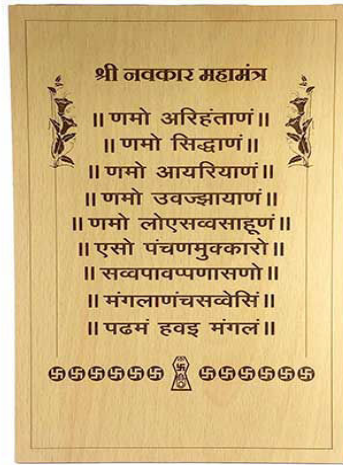 श्री नवकार महामंत्र
॥ णमो अरिहंताणं॥
॥ णमो सिद्धाणं॥
॥ णमो आयरियाणं॥
॥ णमो उवज्झायाणं॥
॥ णमो लोएसव्वसाहूणं॥
॥ एसो पंचणमुक्कारो॥
॥ सव्वपावप्पणासणो॥
॥ मंगलाणंचसव्वेसिं॥
॥ पढमं हवइ मंगलं॥